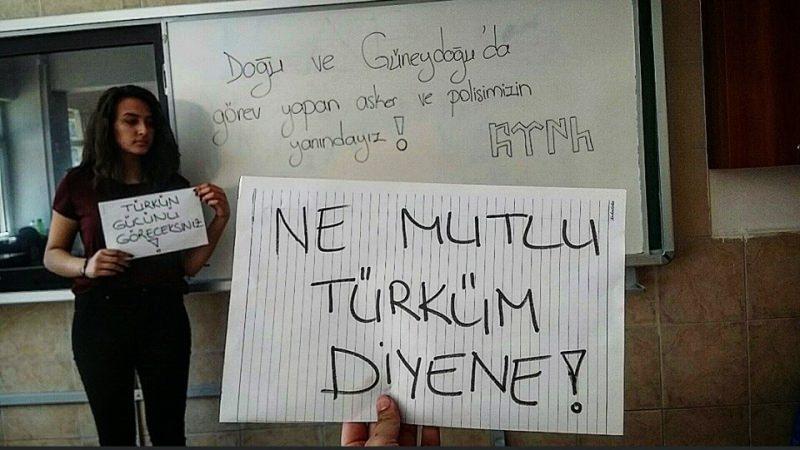 Doğu ve Güneydoğu'da
görev yapan asker ve polisimizin
yanındayız!
𐱅𐰇𐰼𐰰
TÜRKÜN
GÜCÜNÜ
GÖRECEKSİNİZ
!
NE MUTLU
TÜRKÜM
DİYENE!